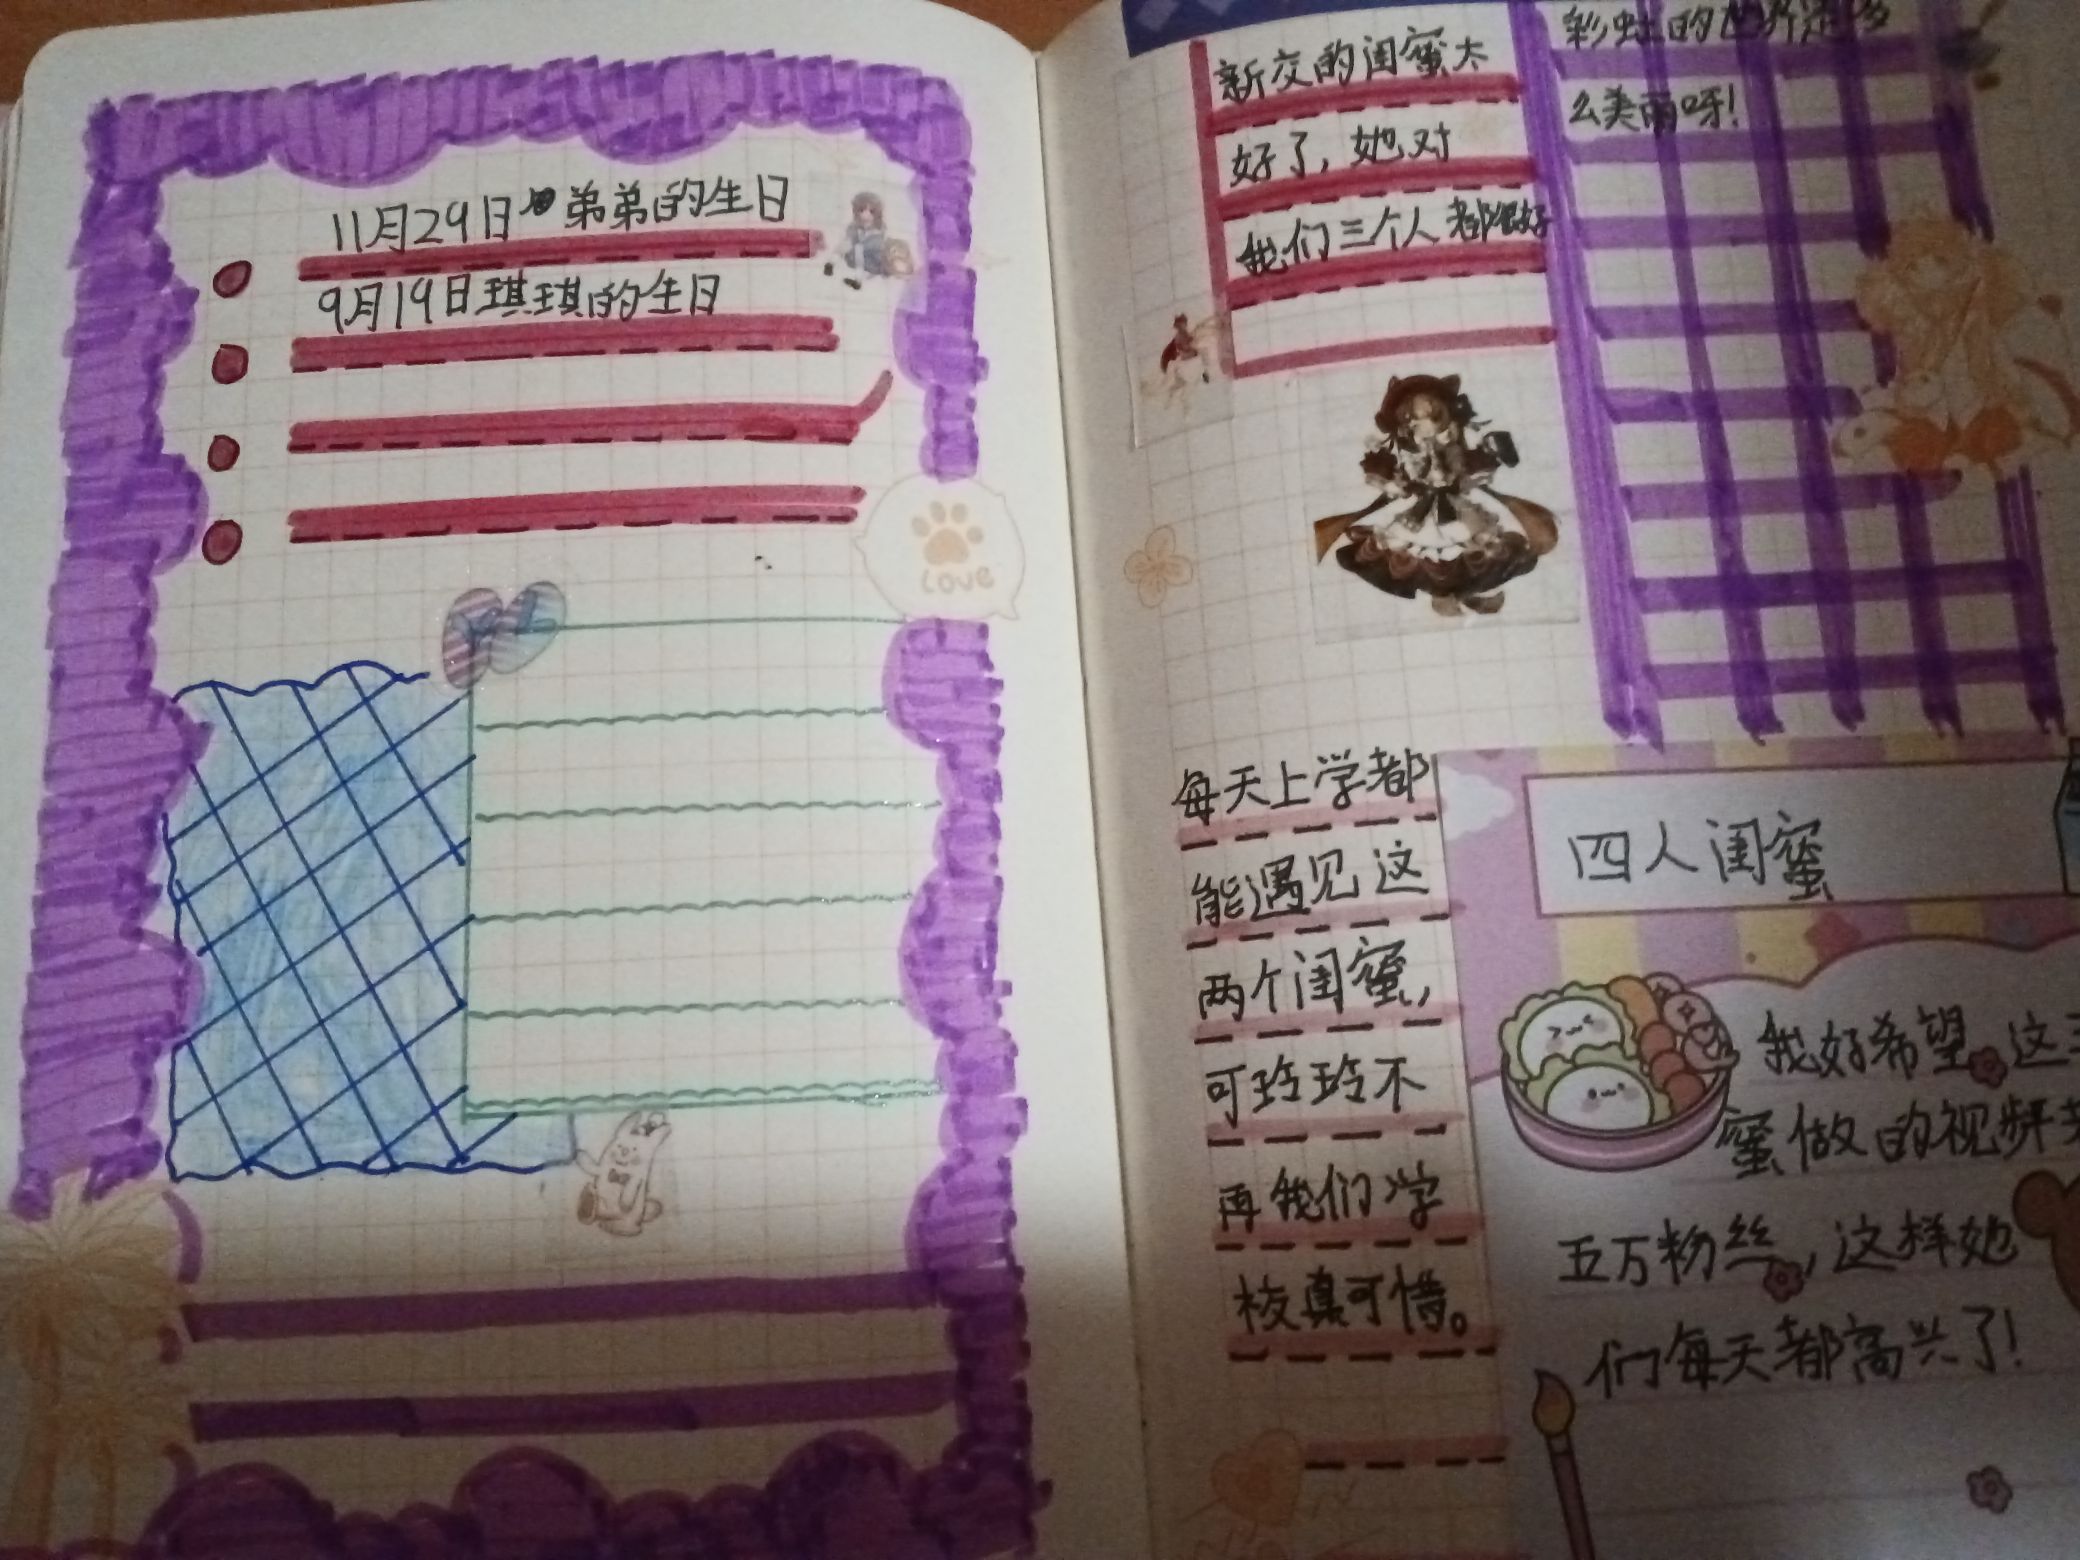 11月29日 弟弟的生日
9月19日琪琪的生日
LOVE
新交的闺蜜太
好了,她对
我们三个人都很好
彩虹的世界是多
么美丽呀!
每天上学都
能遇见这
两个闺蜜,
可玲玲不
再我们学
校真可惜。
四人闺蜜
我好希望这三
蜜做的视频
五万粉丝,这样她
们每天都高兴了!